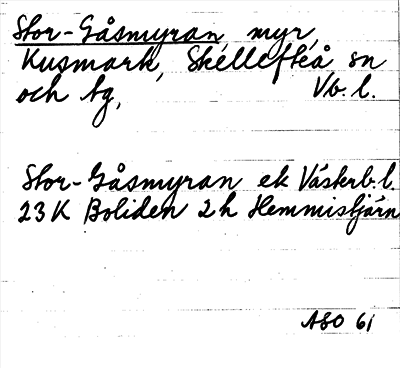 Stor-Gåsmyran myr,
Kusmark, Skellefteå sn
och tg, Vb. l.
Stor-Gåsmyran ek Västerb. l.
23 K Boliden 2 h Hemmistjärn
ASO 61